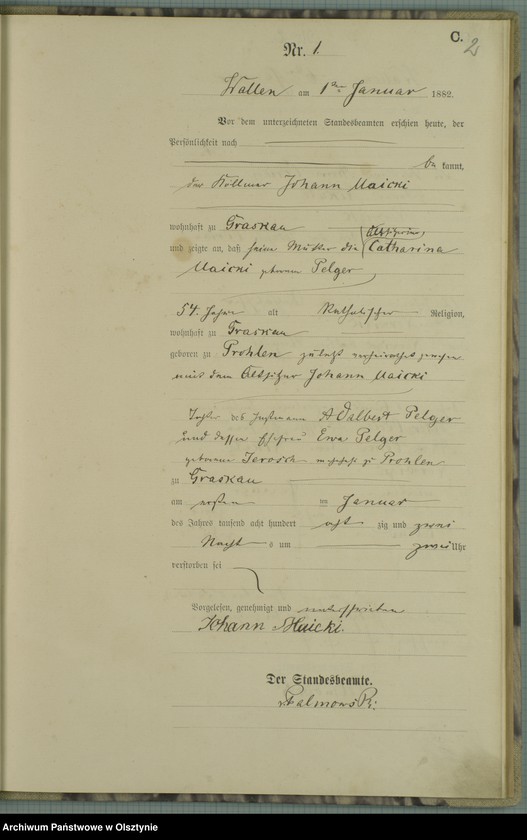 C.
2
Nr. 1.
Wallen am 1ten Januar 1882.
Vor dem unterzeichneten Standesbeamten erschien heute, der
Persönlichkeit nach
be kannt,
der Köllmer Johann Maicki
wohnhaft zu Graskau
Altsitzerin
und zeigte an, daß seine Mutter die Catharina
Maicki geborene Pelger
54 Jahre alt Katholischer Religion,
wohnhaft zu Graskau
geboren zu Prohlen zuletzt verheirathet gewesen
mit dem Altsitzer Johann Maicki
Tochter des Instmann Adalbert Pelger
und dessen Ehefrau Ewa Pelger
geborene Jerosch wohnhaft zu Prohlen
zu Graskau
am ersten im Januar
des Jahres tausend acht hundert acht zig und zwei
Nachts um zwei Uhr
verstorben sei
Vorgelesen, genehmigt und unterschrieben
Johann Maicki.
Der Standesbeamte.